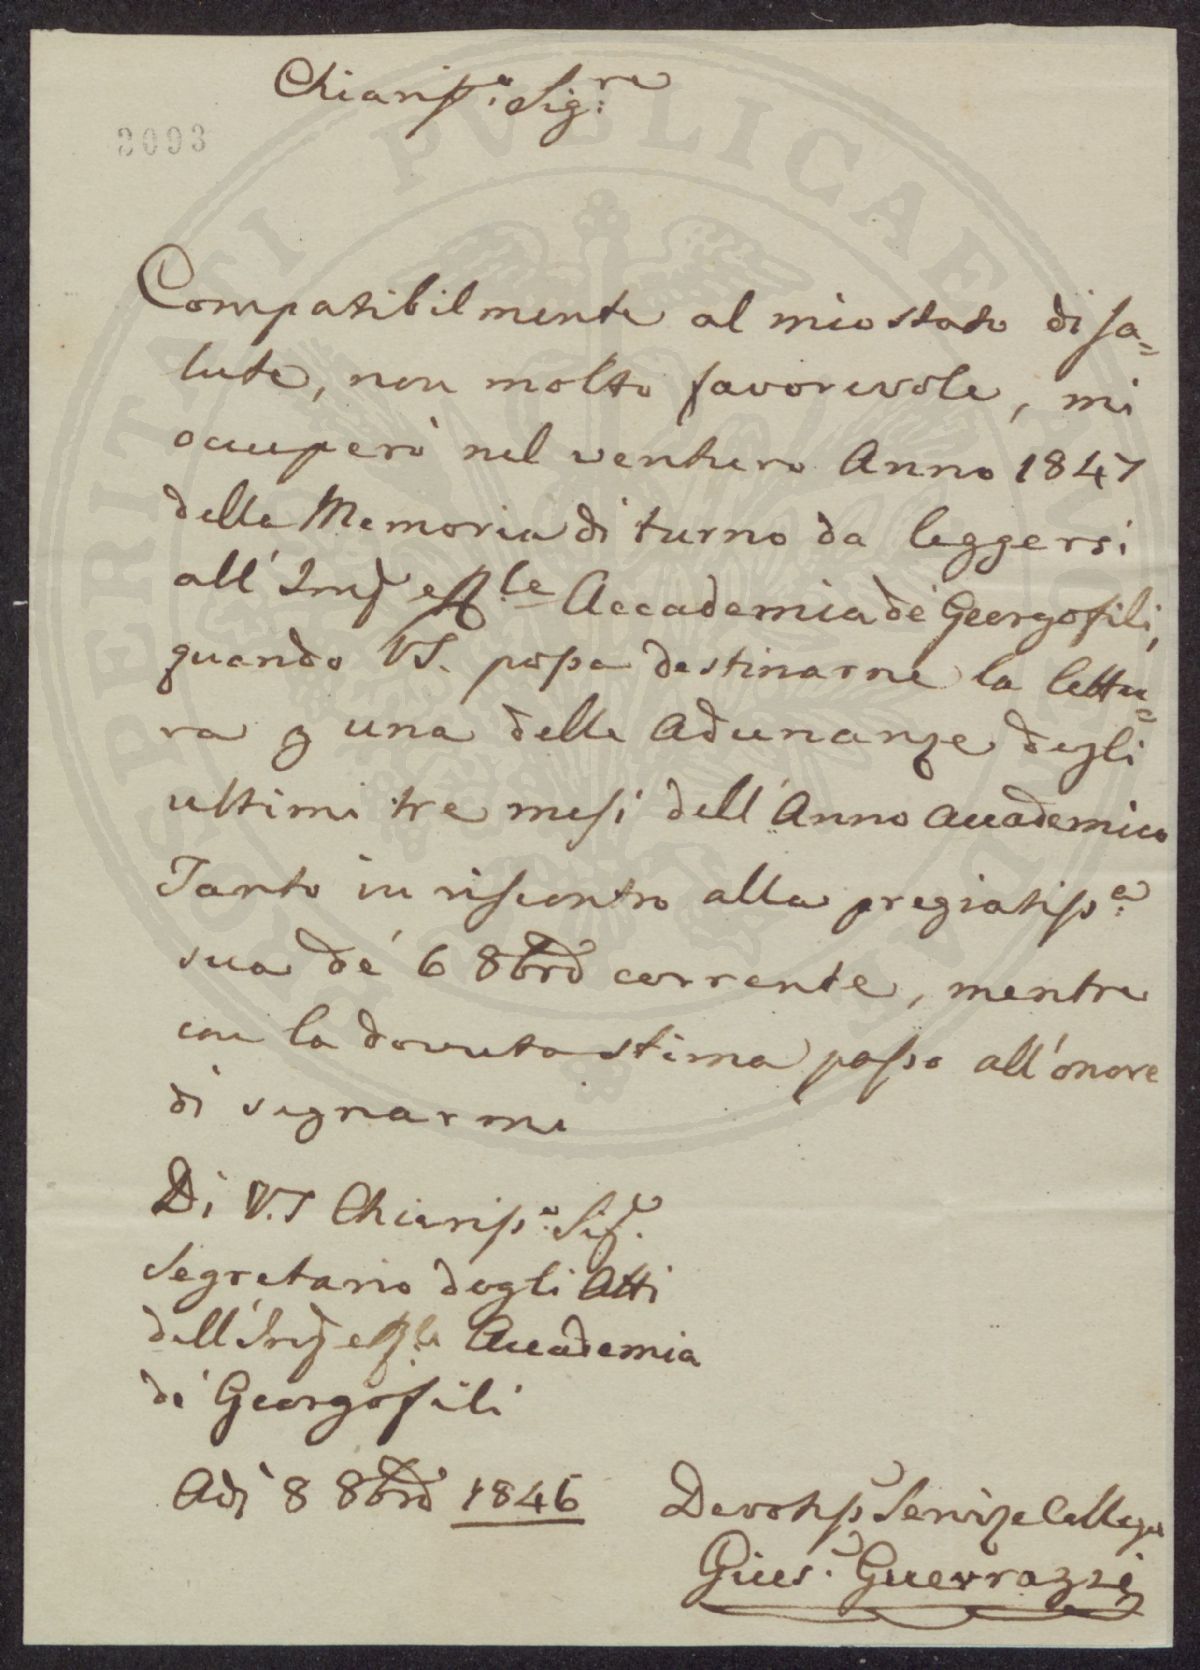 Chiariss.o Sig.re
3093
Compatibilmente al mio stato di sa=
lute, non molto favorevole, mi
occuperò nel venturo Anno 1847
della Memoria di turno da leggersi
all' Imp e R.le Accademia de' Georgofili,
quando VS. possa destinarne la lettu=
ra p una delle Adunanze degli
ultimi tre mesi dell'Anno Accademico
Tanto in riscontro alla pregiatiss.a
sua de' 6 8bre corrente, mentre
con la dovuta stima passo all'onore
di segnarmi
Di V.S Chiariss.o Sig.e
Segretario degli Atti
dell'Imp e R.le Accademia
de' Georgofili
Adì 8 8bre 1846
Devotiss Serv. e Collega
Gius. Guerrazzi
PROSPERITATI PVBLICAE AVGENDAE